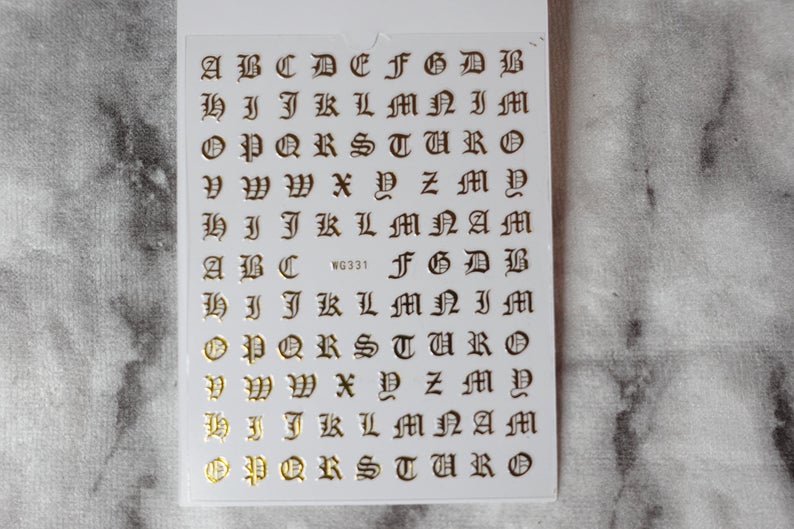 A B C D E F G D B
H I J K L M N I M
O P Q R S T U R O
V W W X Y Z M Y
H I J K L M N A M
A B C WG331 F G D B
H I J K L M N I M
O P Q R S T U R O
V W W X Y Z M Y
H I J K L M N A M
O P Q R S T U R O